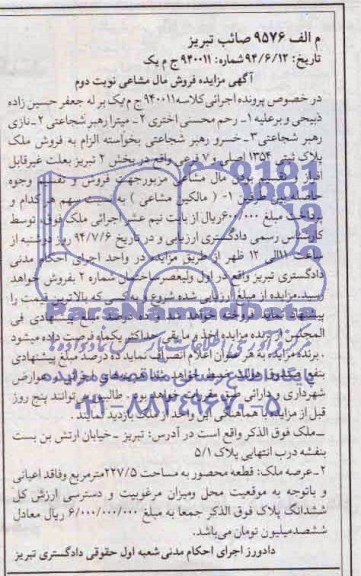 م الف ۹۵۷۶ صائب تبریز
تاریخ: ۹۴/۶/۱۲ شماره: ۹۴۰۰۱۱ ج م یک
آگهی مزایده فروش مال مشاعی نوبت دوم
در خصوص پرونده اجرائی کلاسه ۹۴۰۰۱۱ ج م یک بر له جعفر حسین زاده
ذبیحی و برعلیه ۱- رحم محسنی اختری ۲- میترا رهبر شجاعتی ۲- نازی
رهبر شجاعتی ۳- خسرو رهبر شجاعتی بخواسته الزام به فروش ملک
پلاک ثبتی ۱۳۵۴ اصلی و ۷ فرعی واقع در بخش ۲ تبریز بعلت غیرقابل
مال مشاعی مزبور جهت فروش و تقسیم وجوه
طرفین ۱- (مالکین مشاعی) به نسبت سهم هر کدام و
پرداخت مبلغ ریال از بابت نیم عشر اجرائی ملک فوق، توسط
کارشناس رسمی دادگستری ارزیابی و در تاریخ ۹۴/۷/۶ روز دوشنبه از
ساعت ۱۱ الی ۱۲ ظهر از طریق مزایده در واحد اجرای احکام مدنی
دادگستری تبریز واقع در اول ولیعصر ساختمان شماره ۲ بفروش خواهد
رسید. مزایده از مبلغ ارزیابی شده شروع و به کسی که بالاترین قیمت را
پیشنهادی فی
المجلس از برنده مزایده اخذ و مابقی حداکثر یکماه میشود
، برنده مزایده به هر عنوان اعلام انصراف نماید ۱۰ درصد مبلغ پیشنهادی
بنفع
شهرداری و دارائی خواهد بود. طالبین می توانند پنج روز
قبل از مزایده با هماهنگی این واحد از ملک بازدید نمایند.
ـ ملک فوق الذکر واقع است در آدرس: تبریز - خیابان ارتش بن بست
بنفشه درب انتهایی پلاک ۵/۱
۲- عرصه ملک: قطعه محصور به مساحت ۲۲۷/۵ مترمربع وفاقد اعیانی
و باتوجه به موقعیت محل ومیزان مرغوبیت و دسترسی ارزش کل
ششدانگ پلاک فوق الذکر جمعا به مبلغ ۶/۰۰۰/۰۰۰/۰۰۰ ریال معادل
ششصدمیلیون تومان می‌باشد.
دادورز اجرای احکام مدنی شعبه اول حقوقی دادگستری تبریز
ParsNamadData
پایگاه اطلاع رسانی مناقصه و مزایده
۰۲۱-۸۸۳۴۹۶۷۰-۵